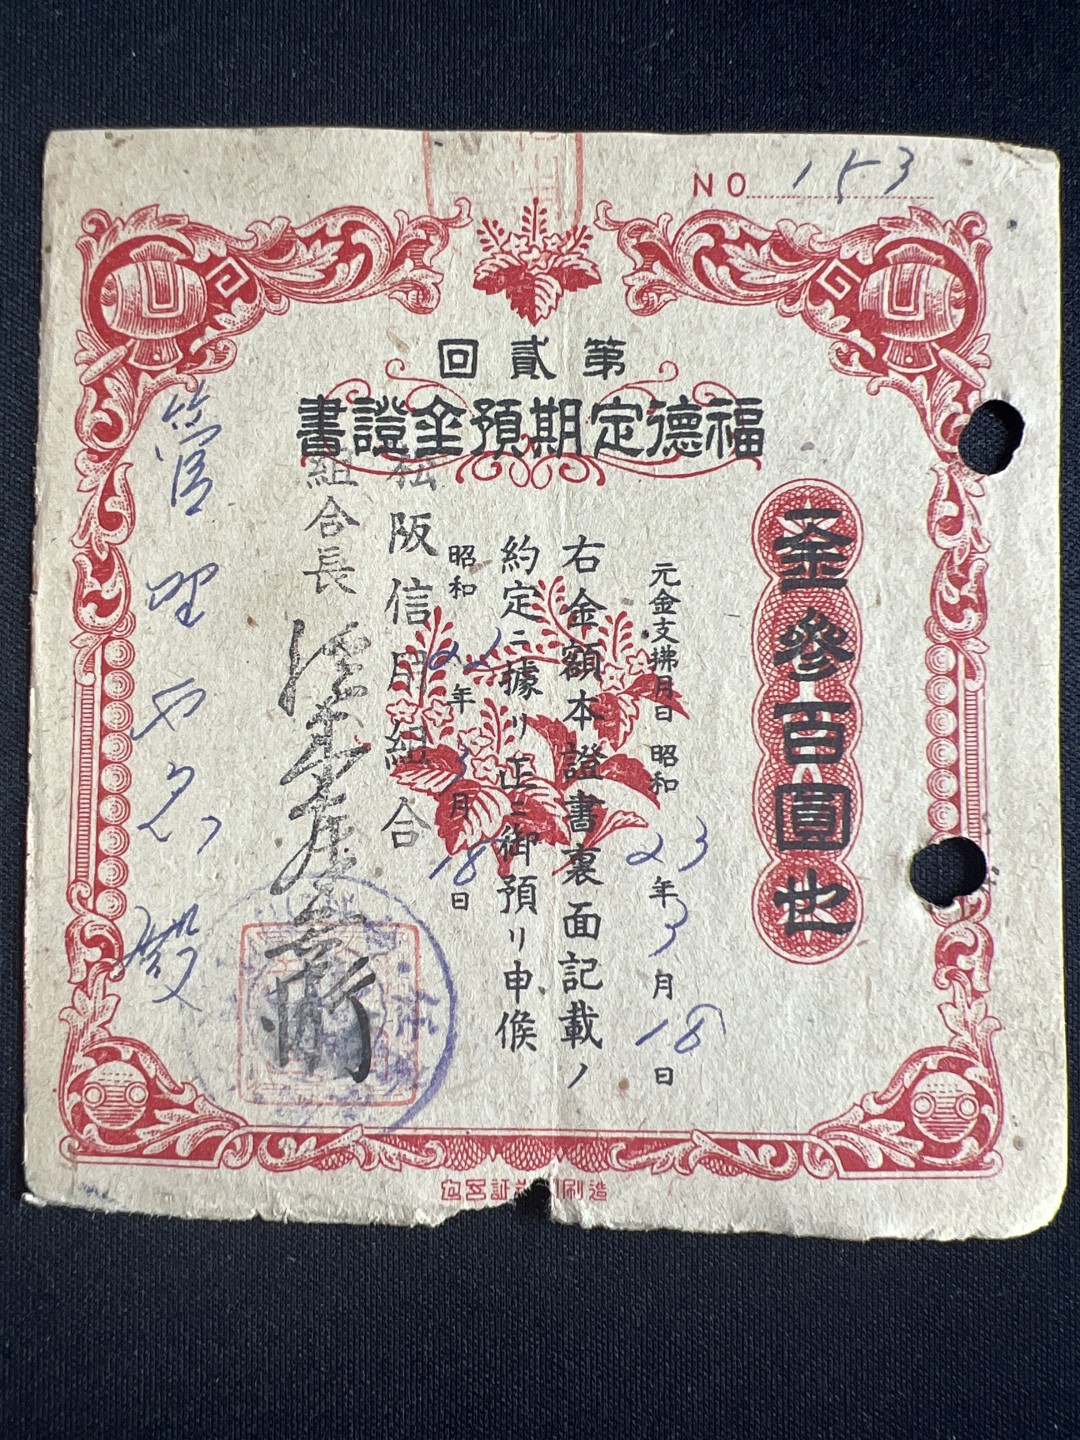 NO 153
第貳回
福德定期預金證書
金參百圓也
元金支拂月日 昭和23年3月18日
右金額本證書裏面記載ノ
約定ニ據リ正ニ御預リ申候
昭和22年3月18日
松阪信用組合
組合長
菅野
殿